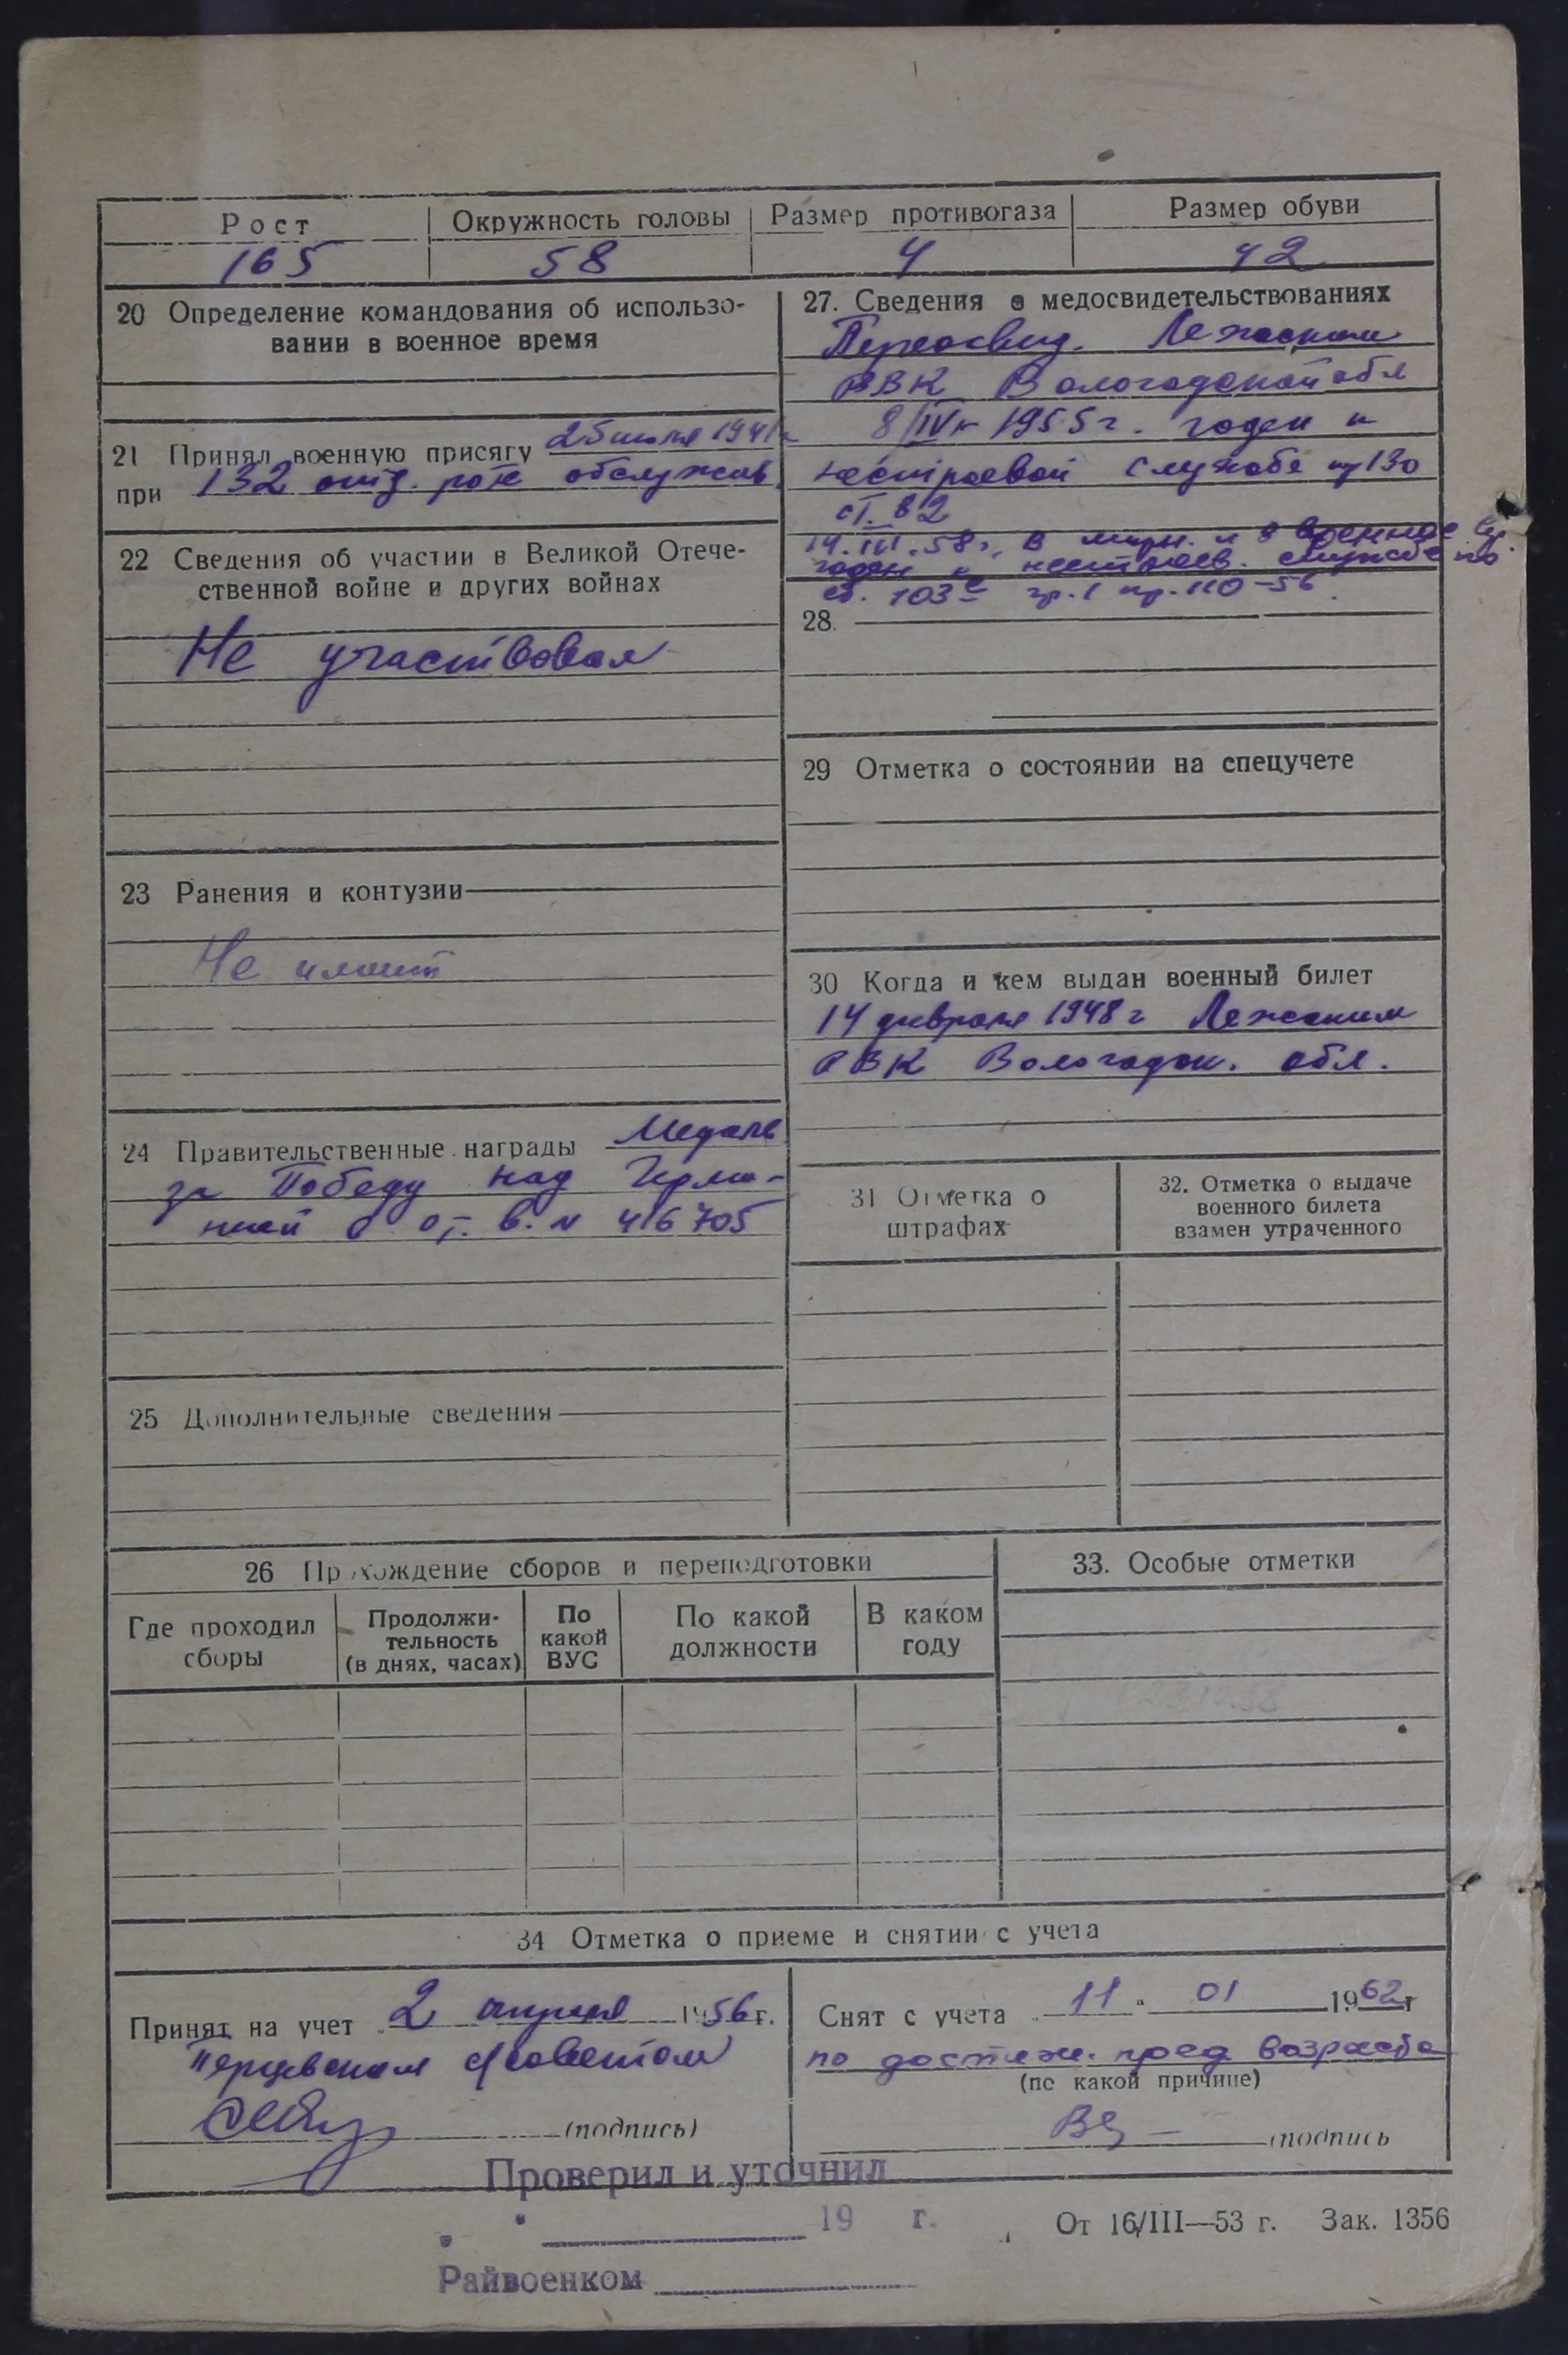 Рост Окружность головы Размер противогаза Размер обуви
165 58 4 42
20 Определение командования об использо-
вании в военное время
21 Принял военную присягу 25 июля 1941 г
при 132 отд. роте обслужив.
22 Сведения об участии в Великой Отече-
ственной войне и других войнах
Не участвовал
23 Ранения и контузии
Не имеет
24 Правительственные награды Медаль
за Победу над Герма-
нией в от. в. № 416705
25 Дополнительные сведения
27. Сведения о медосвидетельствованиях
Переосвид. Лежским
РВК Вологодской обл
8/IV 1955 г. годен к
нестроевой службе пр 130
ст. 82
14.III.58 г. в мирн. и в военное вр.
годен к нестроев. службе по
ст. 103 гр. 1 пр. 110-56.
28.
29 Отметка о состоянии на спецучете
30 Когда и кем выдан военный билет
14 февраля 1948 г Лежским
РВК Вологодск. обл.
31 Отметка о
штрафах
32. Отметка о выдаче
военного билета
взамен утраченного
26 Прохождение сборов и переподготовки
Где проходил
сборы
Продолжи-
тельность
(в днях, часах)
По
какой
ВУС
По какой
должности
В каком
году
33. Особые отметки
34 Отметка о приеме и снятии с учета
Принят на учет 2 апреля 1956 г.
Перцевским с/советом
(подпись)
Снят с учета 11 01 1962 г
по достиж. пред возраста
(по какой причине)
(подпись
Проверил и уточнил
19 г.
Райвоенком
От 16/III—53 г. Зак. 1356